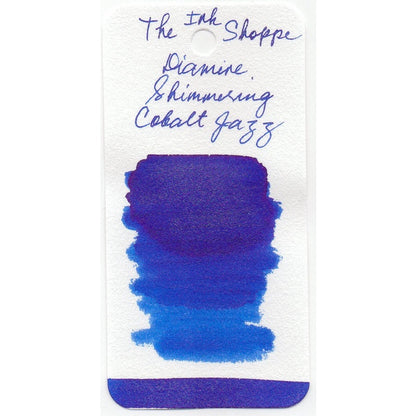 The Ink Shoppe
Diamine
Shimmering
Cobalt Jazz